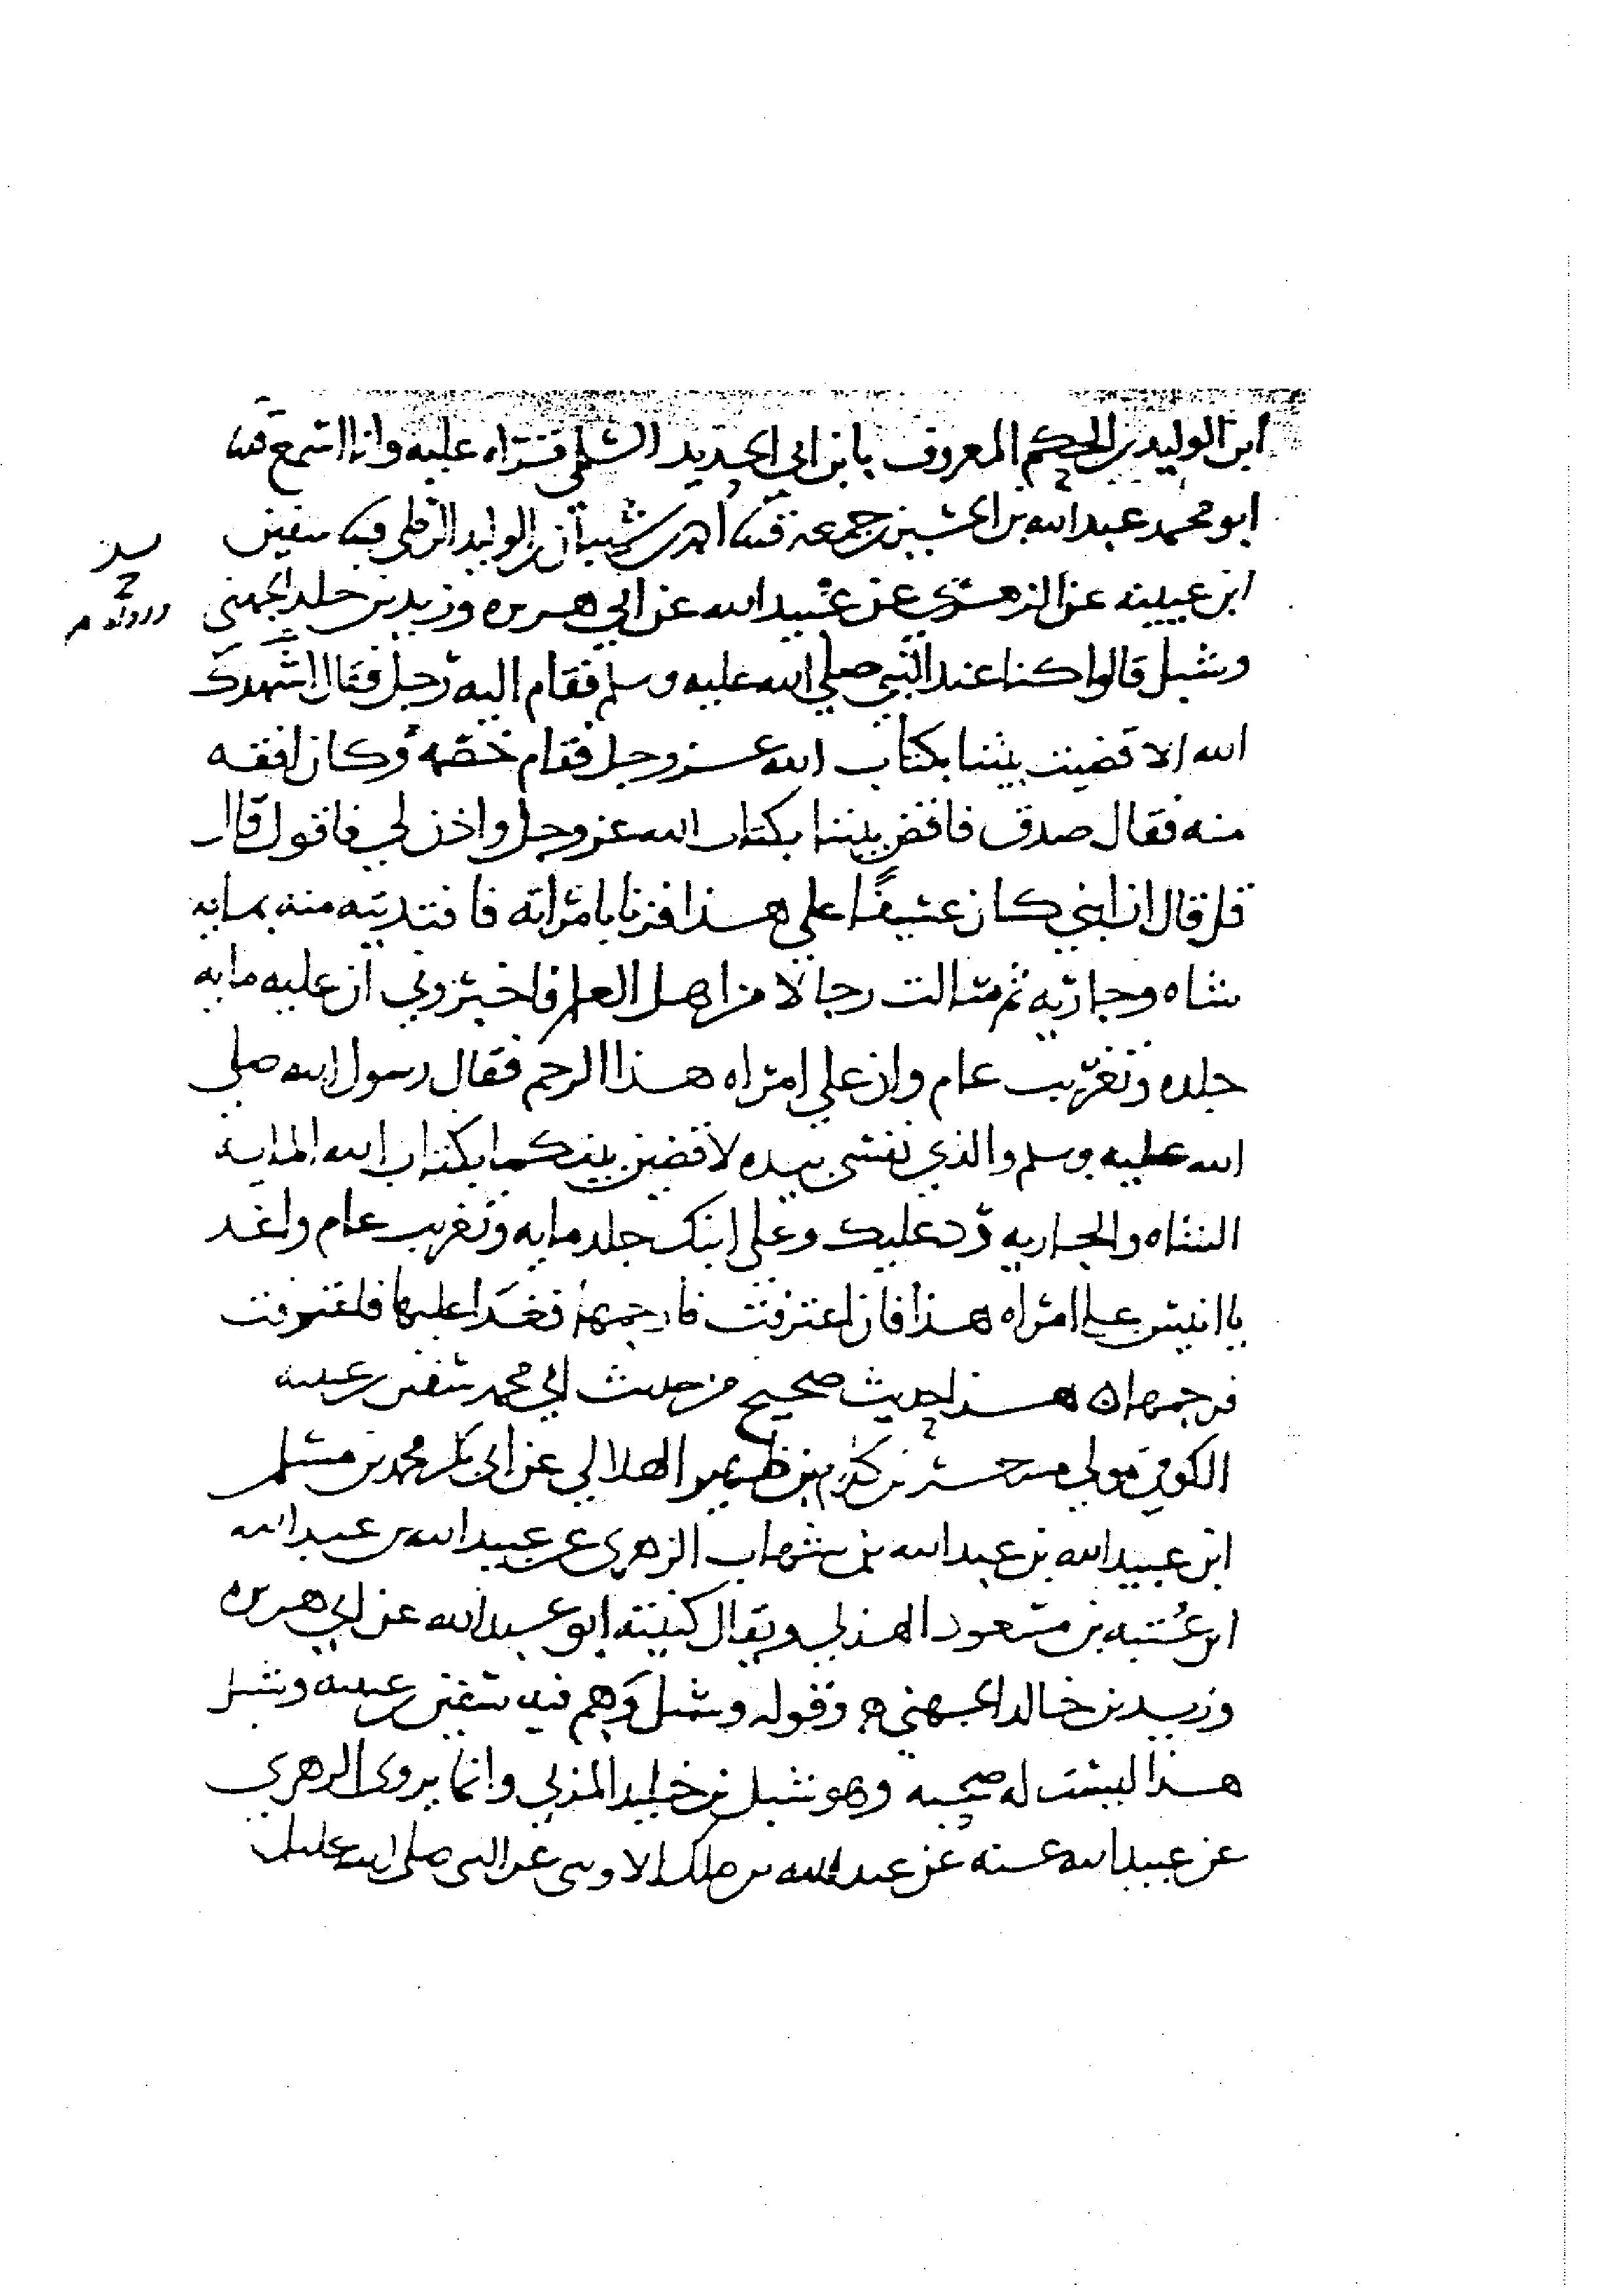 ابن الوليد بن الحكم المعروف بابن ابي الحديد السلمي قراه عليه وانا اسمع قثنا
ابو محمد عبد الله بن الحسين بن جمعه قثنا احمد بن شيبان بن الوليد الرملي قثنا سفين
ابن عيينه عن الزهري عن عبيد الله عن ابي هريره وزيد بن خلد الجهني
وشبل قالوا كنا عند النبي صلى الله عليه وسلم فقام اليه رجل فقال انشدك
الله الا قضيت بيننا بكتاب الله عز وجل فقام خصمه وكان افقه
منه فقال صدق فاقض بيننا بكتاب الله عز وجل واذن لي فاقول قال
قل قال ان ابني كان عسيفًا على هذا فزنا بامراته فافتديته منه بمايه
شاه وجاريه ثم سالت رجالا من اهل العلم فاخبروني ان علیه مايه
جلده وتغريب عام وان على امراه هذا الرجم فقال رسول الله صلى
الله عليه وسلم والذي نفسي بيده لاقضين بينكما بكتاب الله المايه
الشاه والجاريه رد عليك وعلى ابنك جلد مايه وتغريب عام واغد
يا انيس على امراه هذا فان اعترفت فارجمها فغدا عليها فاعترفت
فرجمها ه هذا حديث صحيح من حديث ابي محمد سفين بن عيينه
الكوفي مولى بن الهلالي عن ابي بكر محمد بن مسلم
ابن عبيد الله بن عبد الله بن شهاب الزهري عن عبيد الله بن عبد الله
ابن عُتبه بن مسعود الهذلي ويقال كنيته ابو عبد الله عن ابي هريره
وزيد بن خالد الجهني ه وقوله وشبل وَهِم فيه سفين بن عيينه وشبل
هذا ليست له صحبه وهو شبل بن خليد المزني وانما يروي الزهري
عن عبيد الله عنه عن عبد الله بن ملك الاوسي عن النبي صلى الله عليه